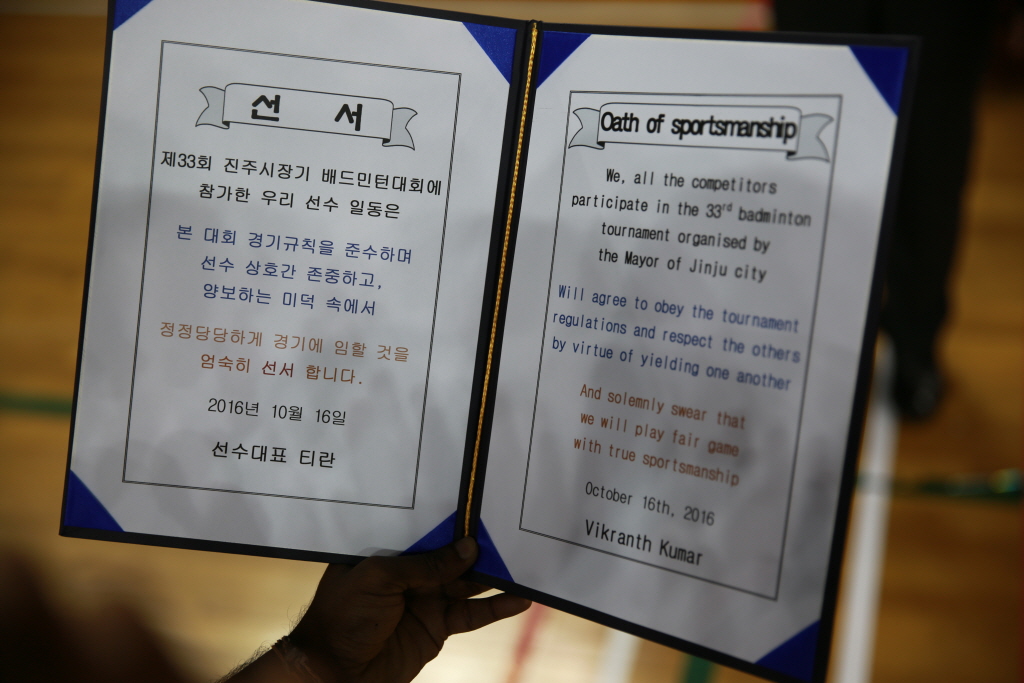 선 서
제33회 진주시장기 배드민턴대회에
참가한 우리 선수 일동은
본 대회 경기규칙을 준수하며
선수 상호간 존중하고,
양보하는 미덕 속에서
정정당당하게 경기에 임할 것을
엄숙히 선서 합니다.
2016년 10월 16일
선수대표 티란
Oath of sportsmanship
We, all the competitors
participate in the 33rd badminton
tournament organised by
the Mayor of Jinju city
Will agree to obey the tournament
regulations and respect the others
by virtue of yielding one another
And solemnly swear that
we will play fair game
with true sportsmanship
October 16th, 2016
Vikranth Kumar